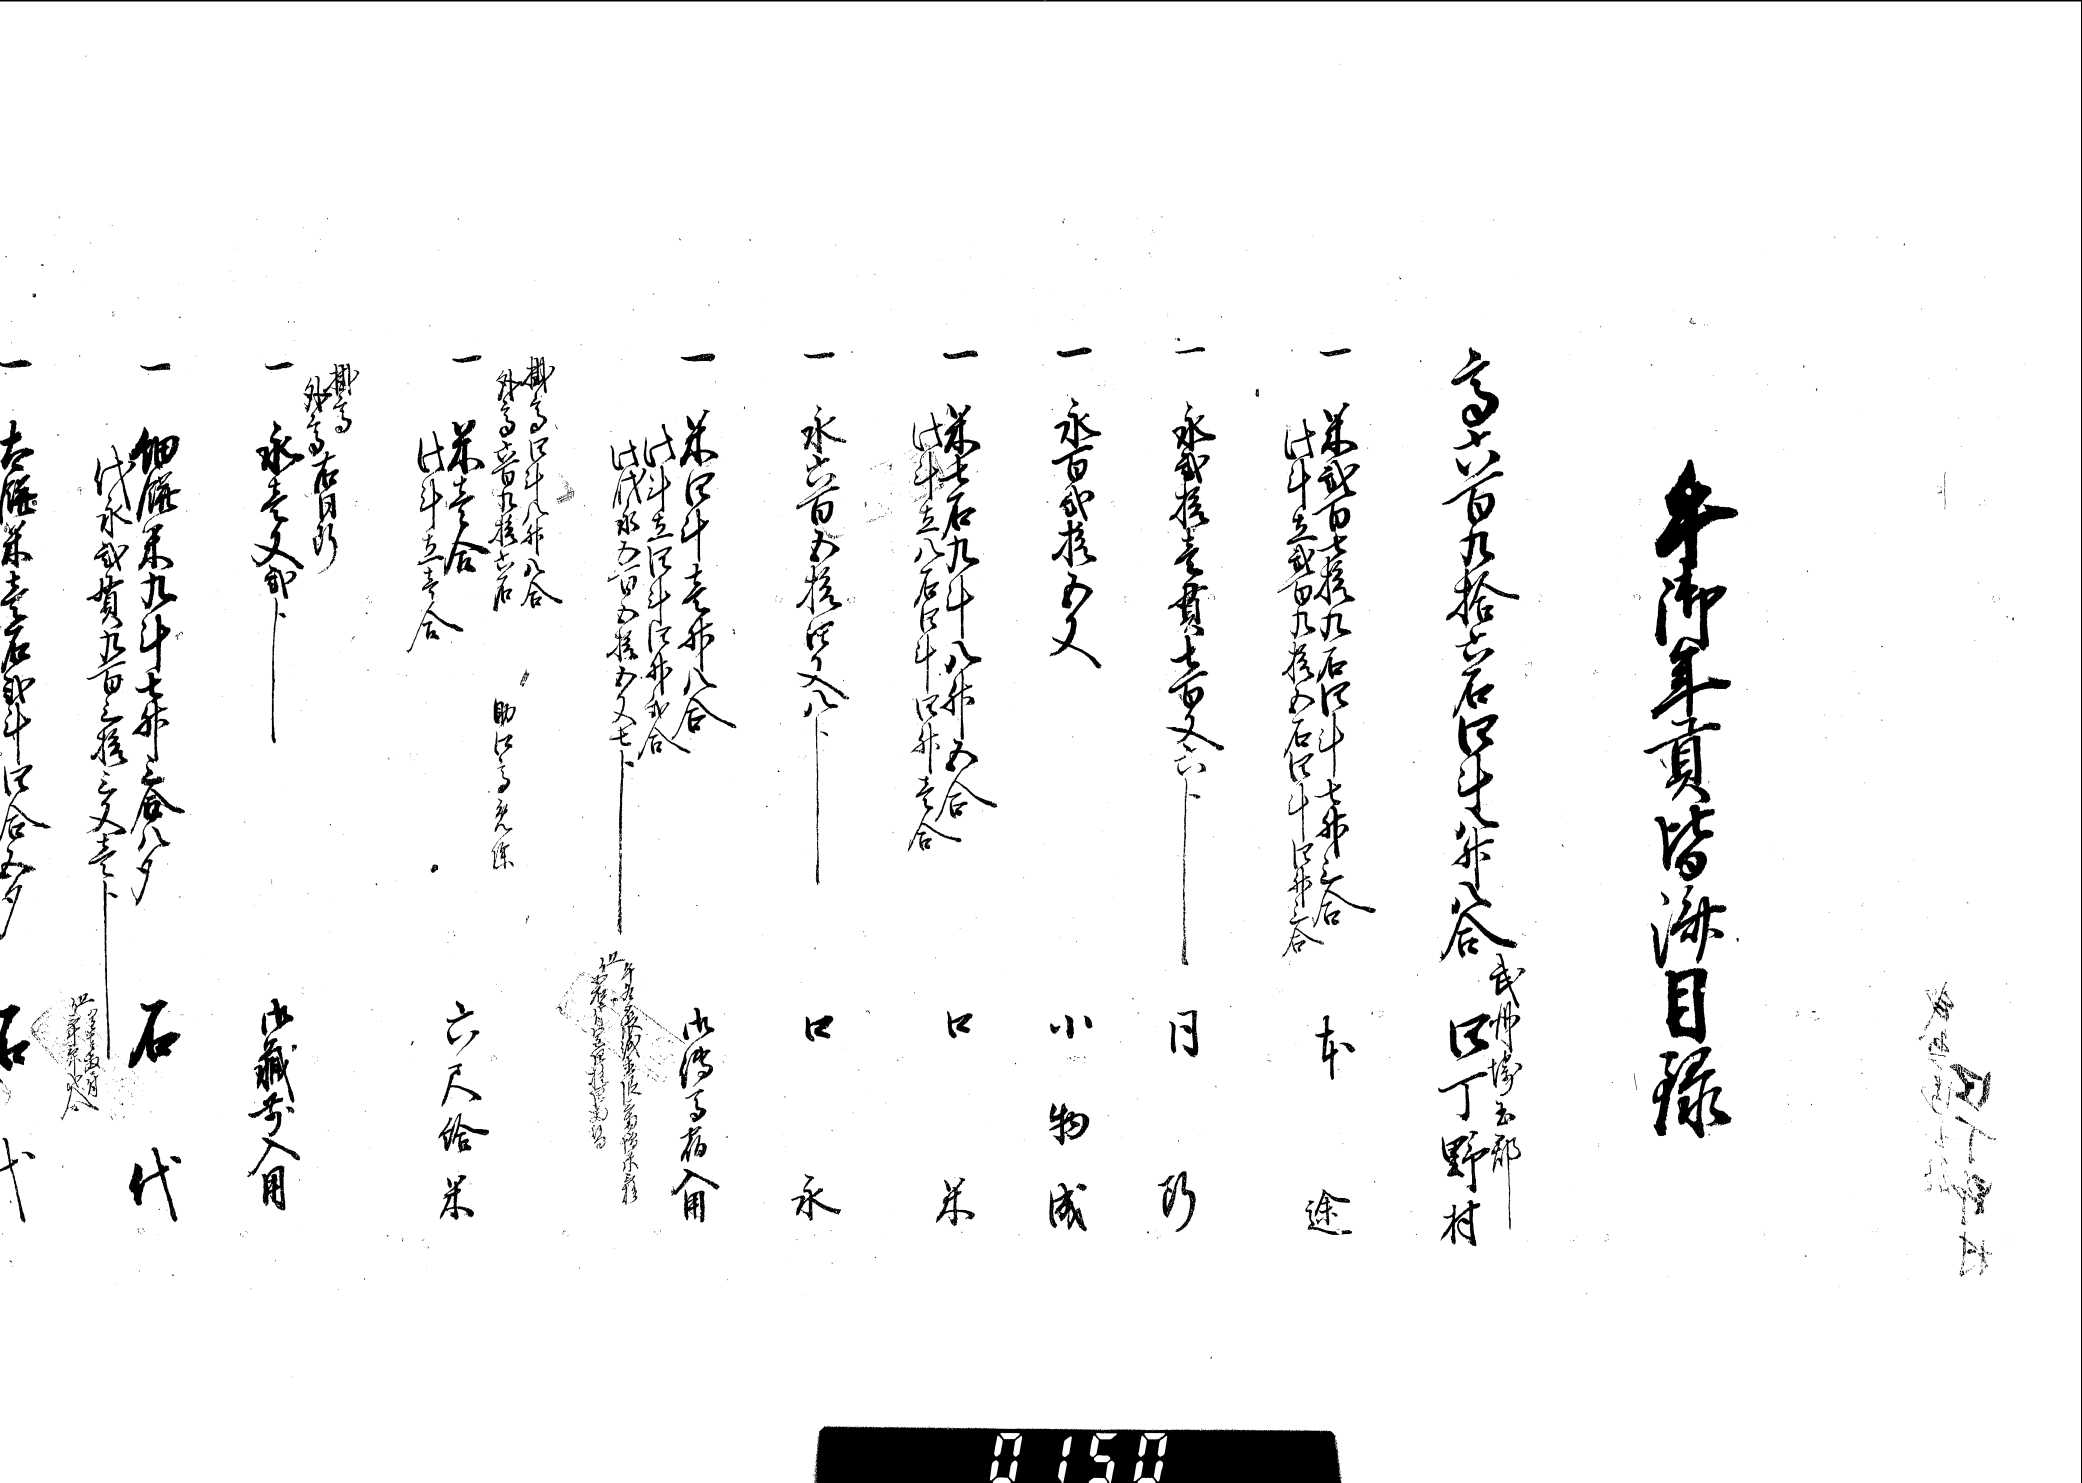 午御年貢皆済目録
高六百九拾六石四斗八升八合
武州埼玉郡
四丁野村
一 米弐百七拾九石四斗七升三合 本途
此斗立弐百九拾五石四斗四升三合
一 永弐拾壱貫七百文六分 同断
一 永百弐拾五文 小物成
一 米七石九斗八升五合 口米
此斗立八石四斗四升壱合
一 永六百五拾四文八分 口永
一 米四斗壱升八合 御伝馬宿入用
此斗立四斗四升弐合
此代永五百五拾五文七分
掛高四斗八升八合
外高六百九拾六石 助郷高免除
一 米壱合 六尺給米
此斗立壱合
掛高
外高右同断
一 永壱文弐分 御蔵前入用
一 細糯米九斗七升三合八夕 石代
代永弐貫九百三拾三文壱分
一 太糯米壱石弐斗四合五夕 石代
0150